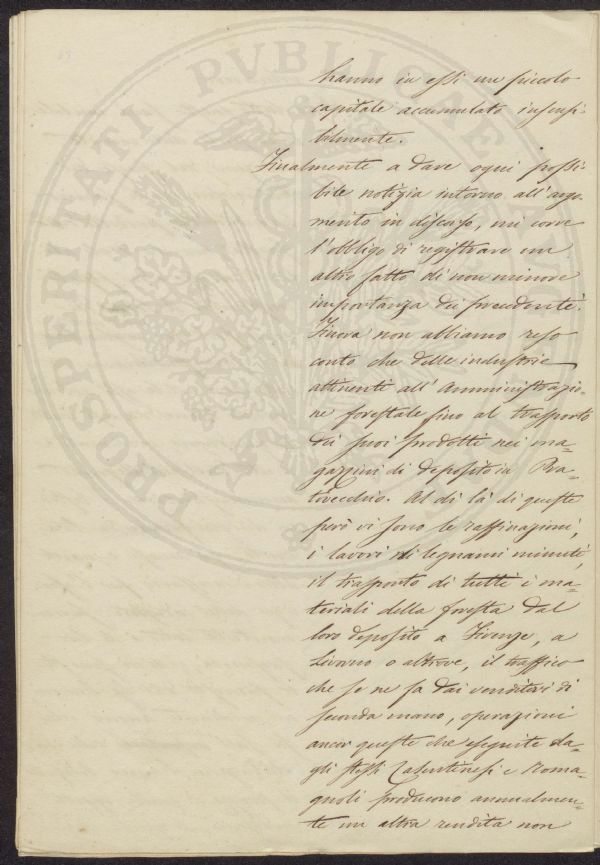 hanno in essi un piccolo
capitale accumulato insensi-
bilmente.
Finalmente a dare ogni possi-
bile notizia intorno all'argo-
mento in discorso, mi corre
l'obbligo di registrare un
altro fatto di non minore
importanza dei precedenti.
Finora non abbiamo reso
conto che delle industrie
attinenti all'Amministrazio-
ne forestale fino al trasporto
dei suoi prodotti nei ma-
gazzini di deposito in Pra-
tovecchio. Al di là di queste
però vi sono le raffinazioni,
i lavori di legnami minuti,
il trasporto di tutti i ma-
teriali della foresta dal
loro deposito a Firenze, a
Livorno o altrove, il traffico
che se ne fa dai venditori di
seconda mano, operazioni
ancor queste che eseguite da-
gli stessi Casentinesi e Roma-
gnoli producono annualmen-
te un altra rendita non
PROSPERITATI PVBLICAE